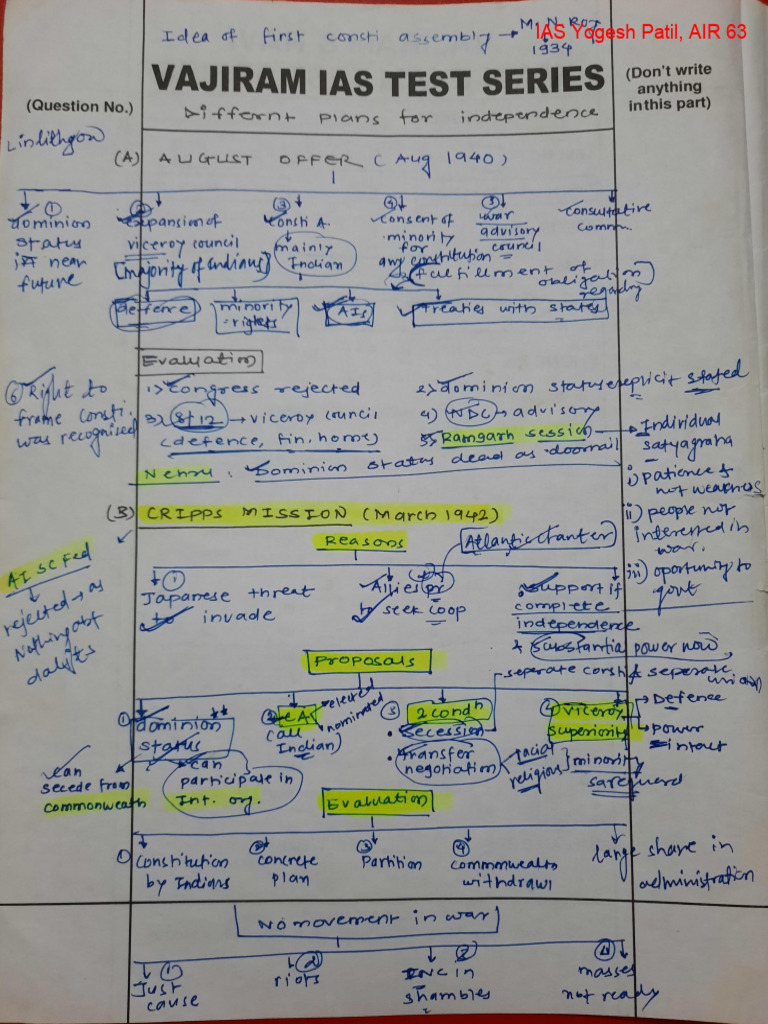 Idea of first consti assembly → M.N. ROY
1934
IAS Yogesh Patil, AIR 63
VAJIRAM IAS TEST SERIES
(Question No.)
(Don't write
anything
in this part)
Differnt plans for independence
Linlithgow
(A) AUGUST OFFER (Aug 1940)
① dominion
status
in near
future
② expansion of
viceroy council
[majority of indians]
③ Consti A.
mainly
Indian
④ Consent of
minority
for
any constitution
⑤ war
advisory
council
Consultative
comm.
fulfillment of
obligation
regarding
defence
minority
rights
AIS
Treaties with states
Evaluation
⑥ Right to
frame consti.
was recognised
1) Congress rejected
2) dominion status explicit stated
3) 8/12 → viceroy council
(defence, fin, home)
4) NDC → advisory
5) Ramgarh session → Individual
satyagraha
Nehru : Dominion status dead as doornail
i) patience &
not weakness
ii) people not
interested in
war.
iii) oportunity to
govt
(B) CRIPPS MISSION (March 1942)
Reasons
Atlantic charter
AI SC Fed
rejected → as
Nothing abt
dalits
① Japanese threat
to invade
Allies pr
to seek coop
support if
complete
independence
& substantial power now,
Proposals
① dominion
status
can
secede from
commonwealth
can
participate in
Int. org.
② CA
(all
Indian)
elected
nominated
③ 2 condn
• Secession
separate consti & seperate
union
• transfer
negotiation
racial
religious
minority
safeguard
④ viceroy
superiority
→ Defence
→ power
intact
Evaluation
① Constitution
by Indians
② concrete
plan
③ Partition
④ commonwealth
withdrawl
large share in
administration
No movement in war
① Just
cause
② riots
③ INC in
shambles
④ masses
not ready